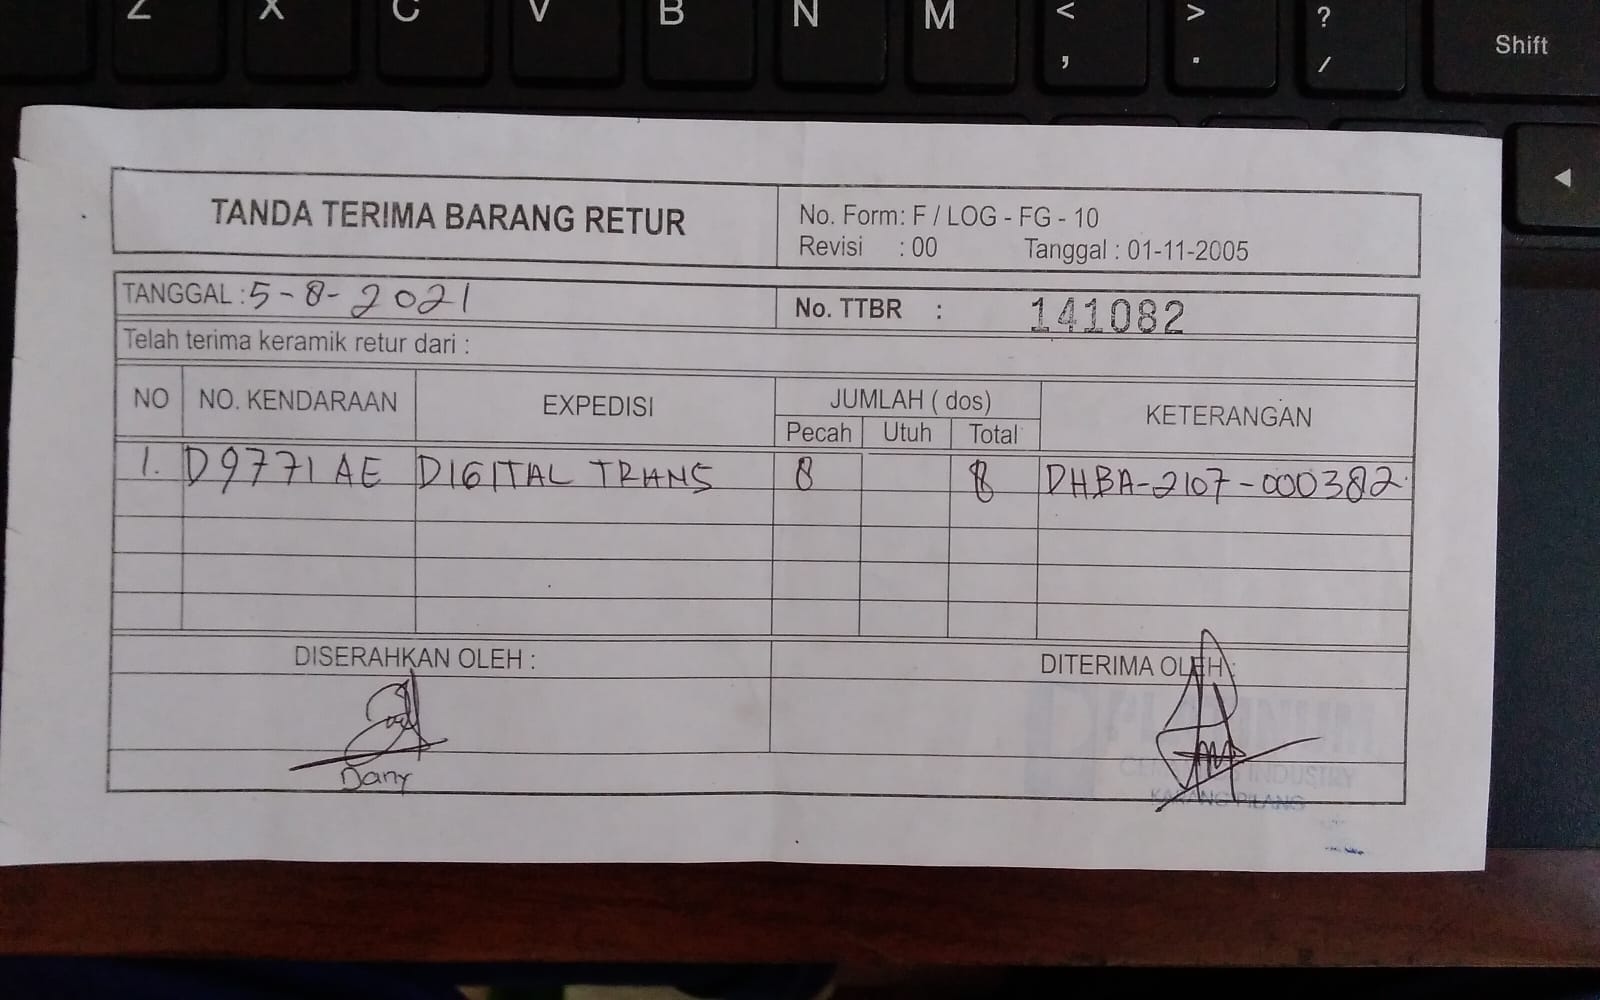 Z X C V B N M < , > . ? / Shift
TANDA TERIMA BARANG RETUR
No. Form: F / LOG - FG - 10
Revisi : 00 Tanggal : 01-11-2005
TANGGAL : 5-8-2021
No. TTBR : 141082
Telah terima keramik retur dari :
NO NO. KENDARAAN EXPEDISI JUMLAH ( dos) KETERANGAN
Pecah Utuh Total
1. D9771 AE DIGITAL TRANS 8 8 DHBA-2107-000382
DISERAHKAN OLEH : DITERIMA OLEH :
Dany
INDUSTRY
KARANG PILANG